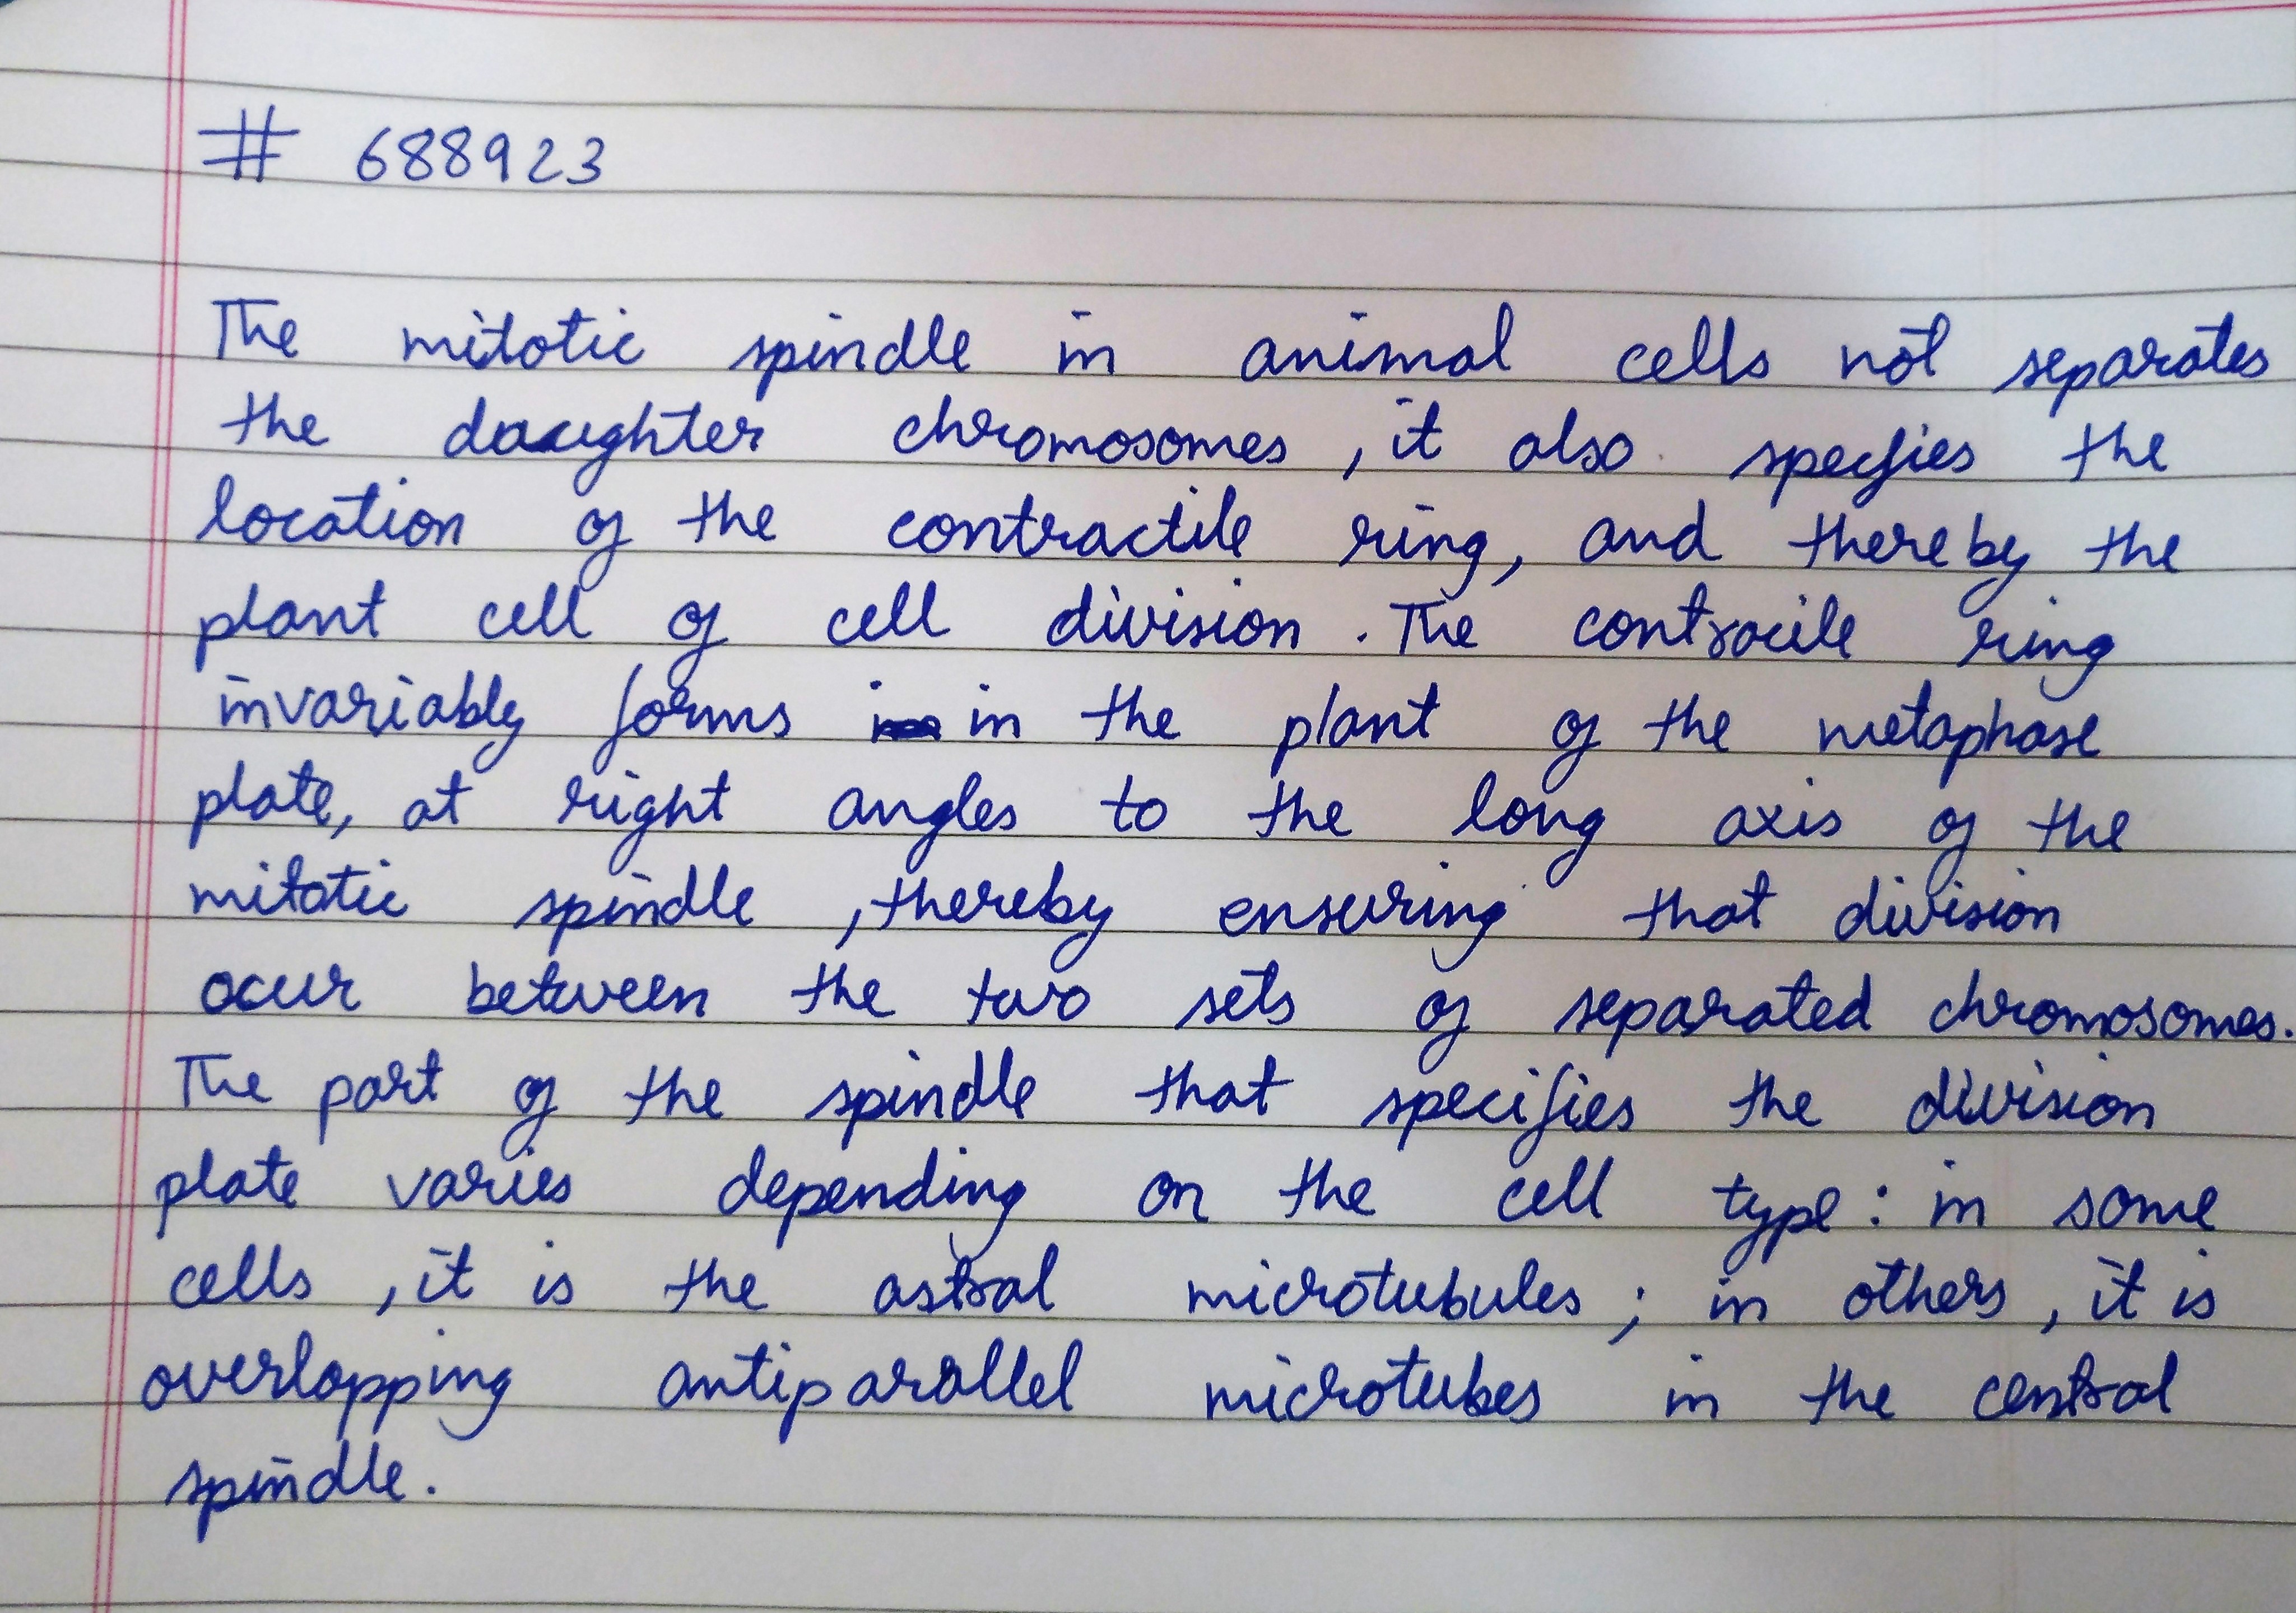 # 688923
The mitotic spindle in animal cells not separates
the daughter chromosomes , it also specfies the
location of the contractile ring, and thereby the
plant cell of cell division . The contracile ring
invariably forms in the plant of the metaphase
plate, at right angles to the long axis of the
mitotic spindle , thereby ensuring that division
ocur between the two sets of separated chromosomes.
The part of the spindle that specifies the division
plate varies depending on the cell type : in some
cells , it is the astral microtubules ; in others , it is
overlapping antiparallel microtubes in the central
spindle.